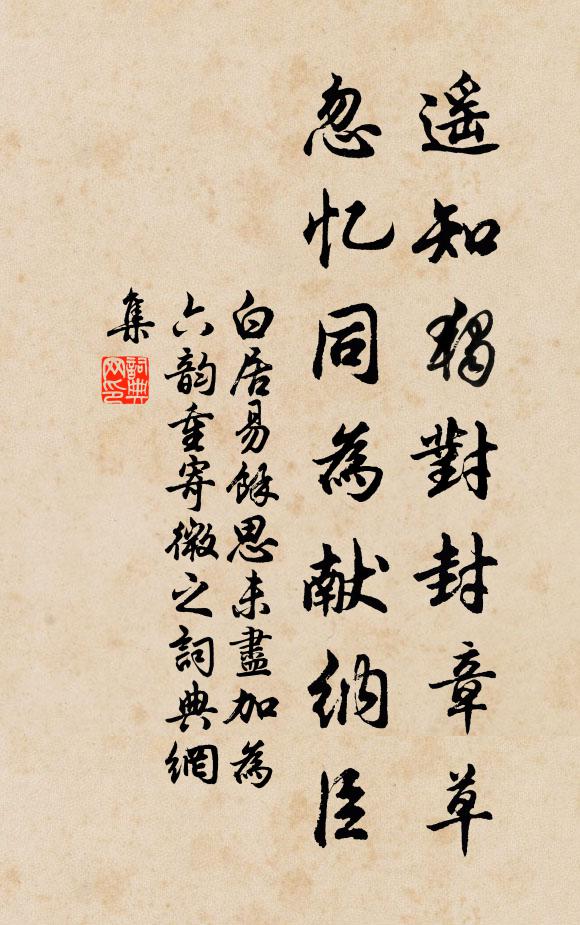 遥知獨對封章草
忽忆同為献纳臣
白居易餘思未盡加為
六韵重寄微之詞典網
集
詞典
网印